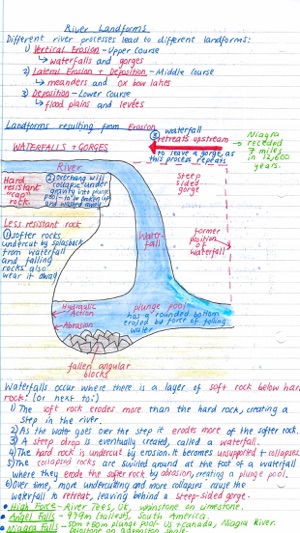 River Landforms
Different river processes lead to different landforms:
1) Vertical Erosion - Upper Course
↳ waterfalls and gorges
2) Lateral Erosion + Deposition - Middle Course
↳ meanders and ox bow lakes
3) Deposition - Lower Course
↳ flood plains and levées
Landforms resulting from Erosion
WATERFALLS + GORGES
③ waterfall
retreats upstream
to leave a gorge as
this process repeats.
Niagra
receded
7 miles
in 12,600
years.
River
Hard
resistant
"cap"
rock
② overhang will
collapse under
gravity into plunge
pool - to be broken up
and washed away
Steep
sided
gorge
Less resistant rock
① softer rocks
undercut by splashback
from waterfall
and falling
rocks also
wear it away
Water-
fall
Former
position
of
waterfall
Hydraulic
Action
Abrasion
plunge pool
has a rounded bottom
eroded by force of falling
water
fallen angular
blocks
Waterfalls occur where there is a layer of soft rock below hard
rock. (or next to:)
1) The soft rock erodes more than the hard rock, creating a
step in the river.
2) As the water goes over the step it erodes more of the softer rock.
3) A steep drop is eventually created, called a waterfall.
4) The hard rock is undercut by erosion. It becomes unsupported + collapses.
5) The collapsed rocks are swirled around at the foot of a waterfall
where they erode the softer rock by abrasion, creating a plunge pool.
6) Over time, most undercutting and more collapses cause the
waterfall to retreat, leaving behind a steep-sided gorge.
• High Force - River Tees, UK, whinstone on limestone.
• Angel Falls - 979m (tallest), South America.
• Niagra Falls - 50m + 50m plunge pool - US + Canada, Niagra River.